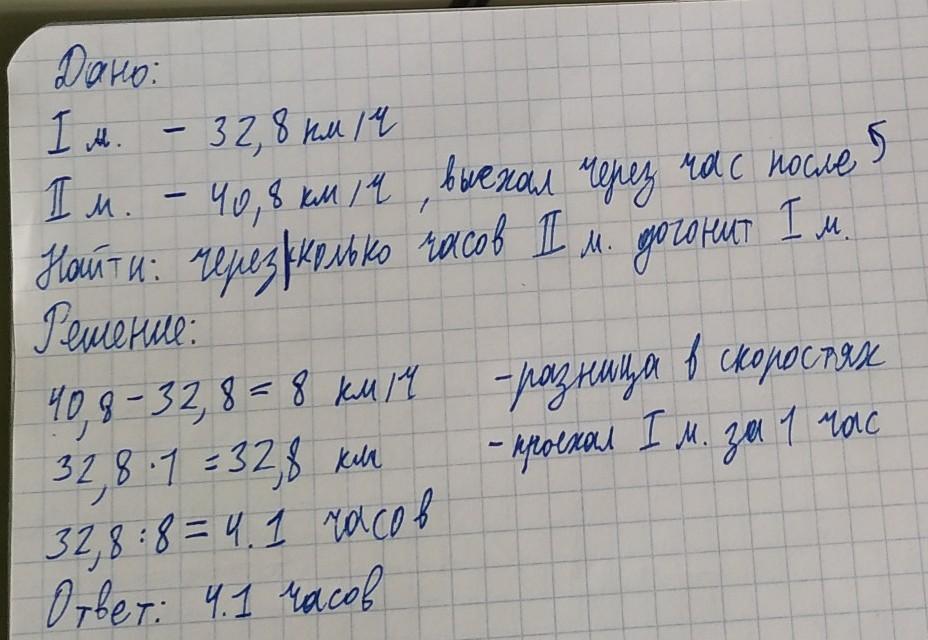 Дано:
I м. - 32,8 км/ч
II м. - 40,8 км/ч, выехал через час после
Найти: через сколько часов II м. догонит I м.
Решение:
40,8 - 32,8 = 8 км/ч - разница в скоростях
32,8 · 1 = 32,8 км - проехал I м. за 1 час
32,8 : 8 = 4.1 часов
Ответ: 4.1 часов